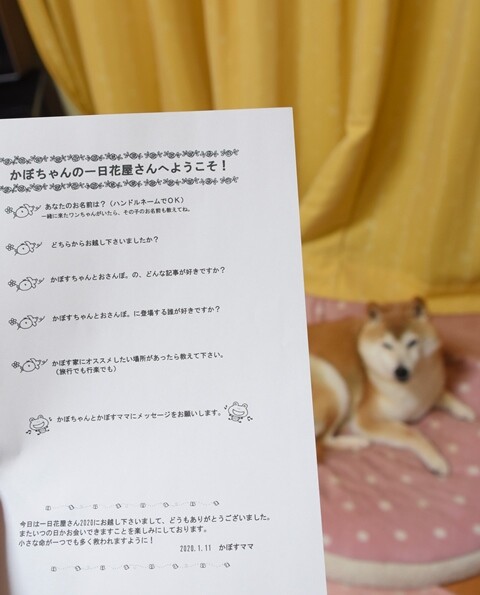 かぼちゃんの一日花屋さんへようこそ!
あなたのお名前は?(ハンドルネームでOK)
一緒に来たワンちゃんがいたら、その子のお名前も教えてね。
どちらからお越し下さいましたか?
かぼすちゃんとおさんぽ。の、どんな記事が好きですか?
かぼすちゃんとおさんぽ。に登場する誰が好きですか?
かぼす家にオススメしたい場所があったら教えて下さい。
(旅行でも行楽でも)
かぼちゃんとかぼすママにメッセージをお願いします。
今日は一日花屋さん2020にお越し下さいまして、どうもありがとうございました。
またいつの日かお会いできますことを楽しみにしております。
小さな命が一つでも多く救われますように!
2020.1.11 かぼすママ